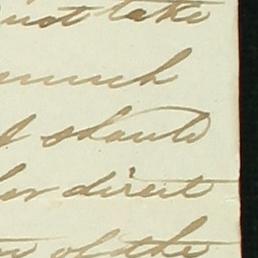 must take
much
I should
her direct
of the